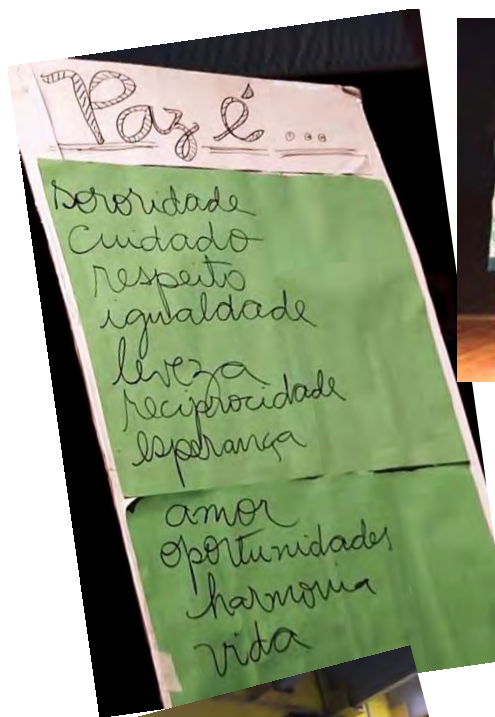 Paz é...
Sororidade
Cuidado
respeito
igualdade
leveza
reciprocidade
esperança
amor
oportunidades
harmonia
vida